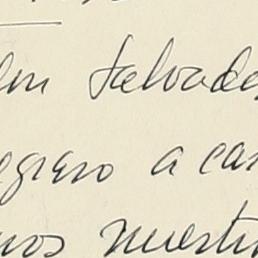 en Salvado
egreso a ca
nos nuestr